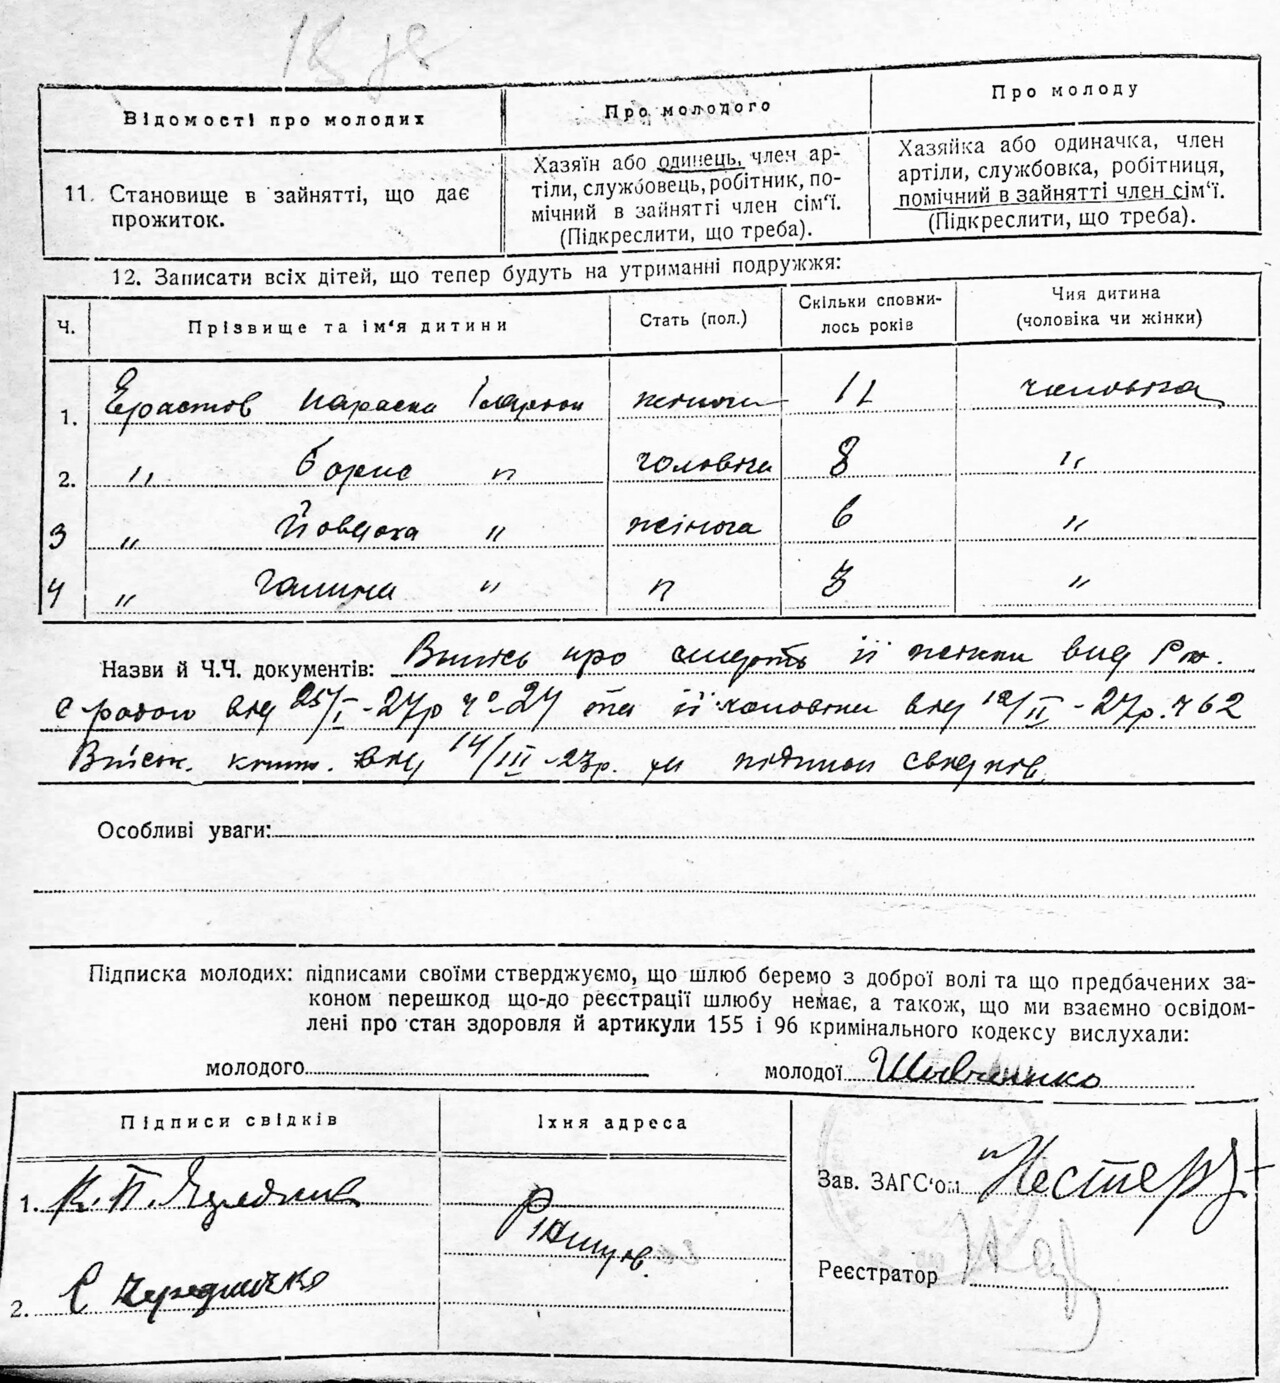 Відомості про молодих
Про молодого
Про молоду
11. Становище в зайнятті, що дає
прожиток.
Хазяїн або одинець, член ар-
тіли, службовець, робітник, по-
мічний в зайнятті член сім'ї.
(Підкреслити, що треба).
Хазяйка або одиначка, член
артіли, службовка, робітниця,
помічний в зайнятті член сім'ї.
(Підкреслити, що треба).
12. Записати всіх дітей, що тепер будуть на утриманні подружжя:
Ч.
Прізвище та ім'я дитини
Стать (пол.)
Скільки сповни-
лось років
Чия дитина
(чоловіка чи жінки)
1. Ерастов Параска жіноча 11 чоловіка
2. " Борис " чоловіча 8 "
3 " " жіноча 6 "
4 " Галина " " 3 "
Назви й Ч.Ч. документів: про смерть її жінки від
від 25/I-27р ч 27 та її чоловіка від 12/II-27р. ч 62
від 14/III-23р. підписи свідків
Особливі уваги:
Підписка молодих: підписами своїми стверджуємо, що шлюб беремо з доброї волі та що предбачених за-
коном перешкод що-до реєстрації шлюбу немає, а також, що ми взаємно освідом-
лені про стан здоровля й артикули 155 і 96 кримінального кодексу вислухали:
молодого
молодої Шевченко
Підписи свідків
Їхня адреса
1. К. П.
2. С Чередниченко
Зав. ЗАГС'ом Нестер
Реєстратор